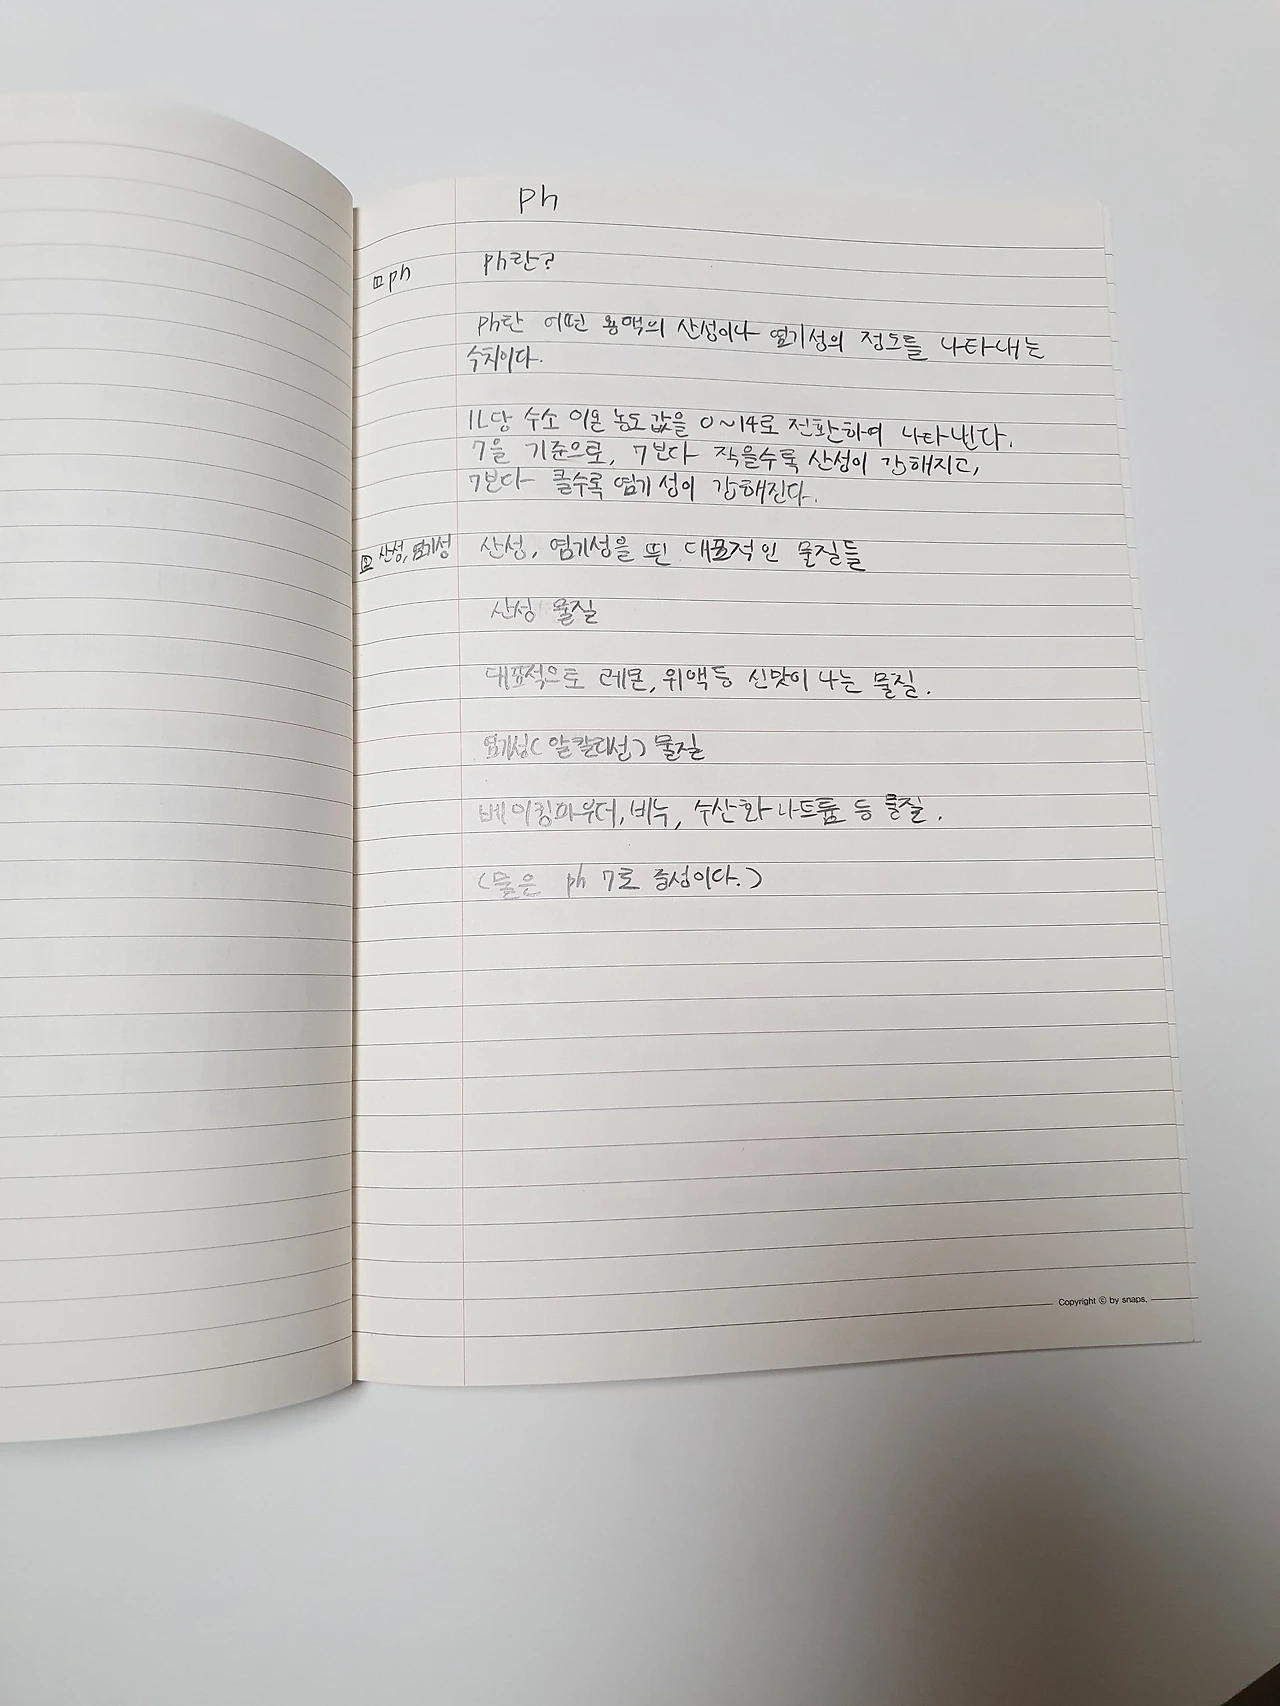 ph
ㅁph
ph란?
ph란 어떤 용액의 산성이나 염기성의 정도를 나타내는
수치이다.
1L당 수소 이온 농도 값을 0~14로 전환하여 나타낸다.
7을 기준으로, 7보다 작을수록 산성이 강해지고,
7보다 클수록 염기성이 강해진다.
산성, 염기성
산성, 염기성을 띈 대표적인 물질들
산성 물질
대표적으로 레몬, 위액등 신맛이 나는 물질.
염기성(알칼리성) 물질
베이킹파우더, 비누, 수산화나트륨 등 물질.
(물은 ph 7로 중성이다.)
Copyright ⓒ by snaps.